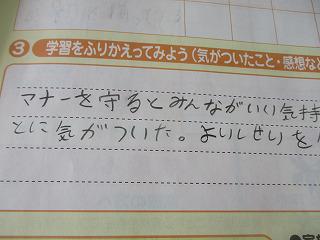 3 学習をふりかえってみよう(気がついたこと・感想な
マナーを守るとみんながいい気持
とに気がついた。よりしせいを